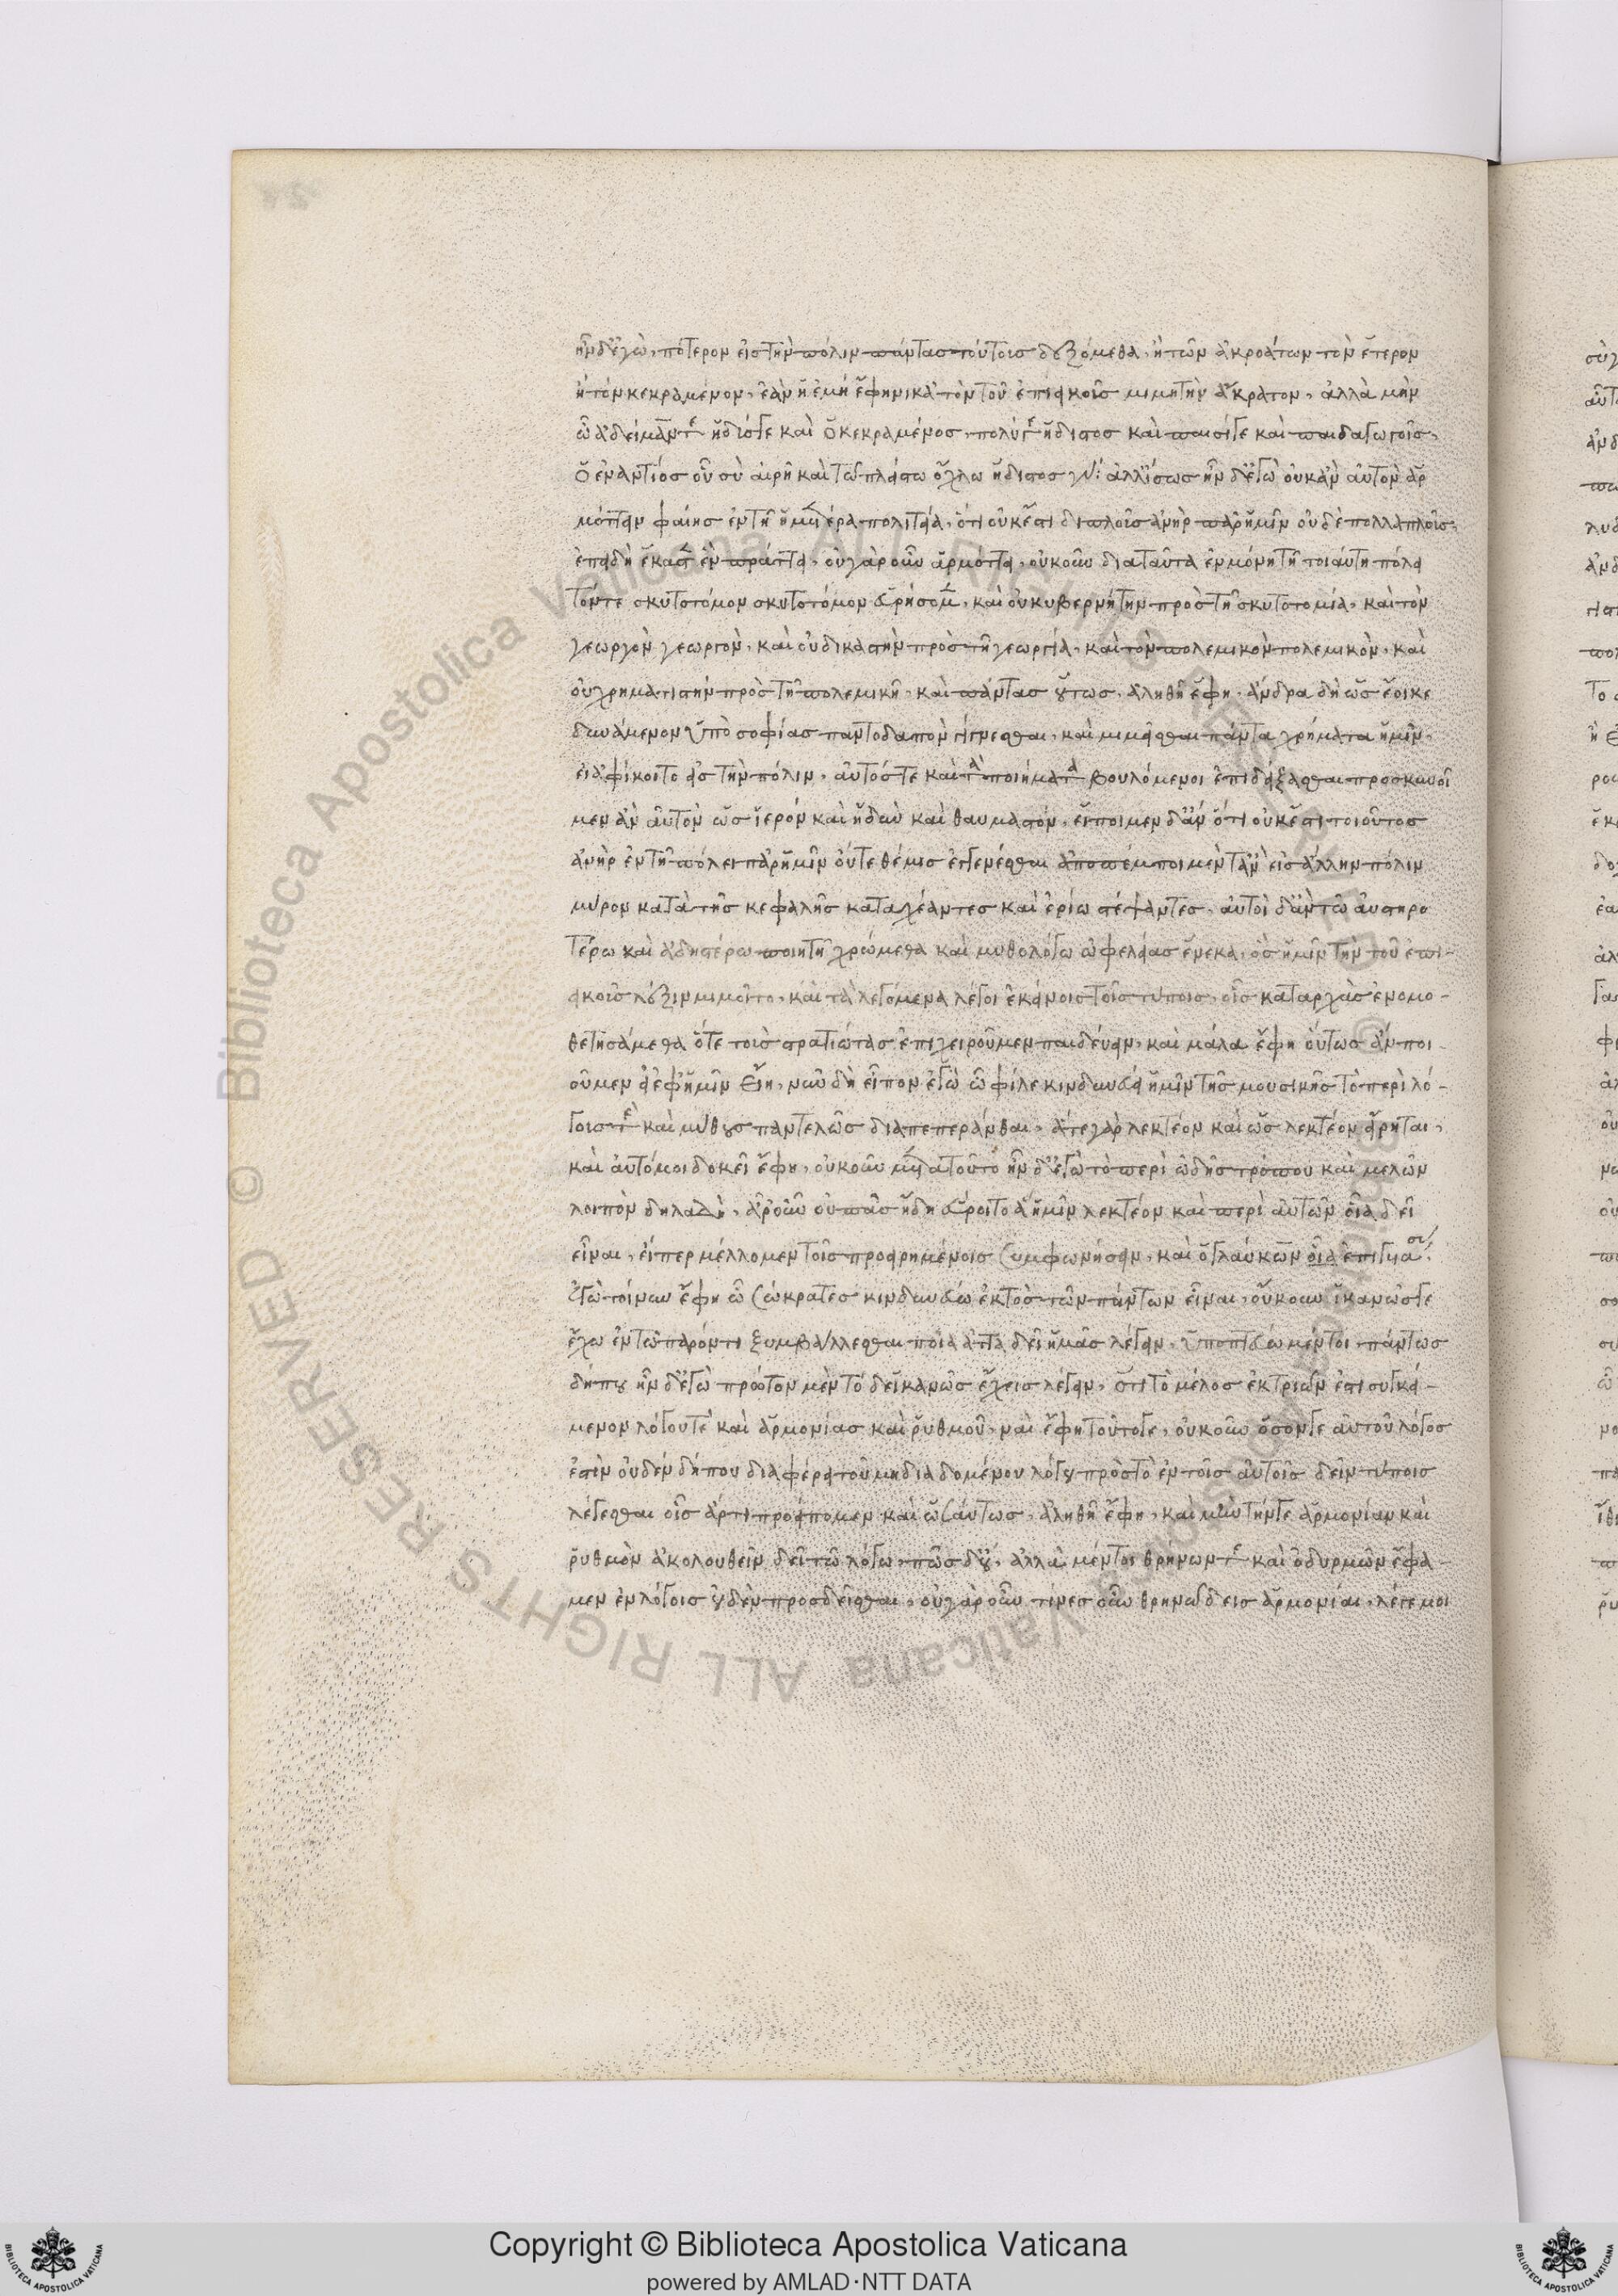 ἦν δ' ἐγὼ, πότερον εἰς τὴν πόλιν πάντας τούτους δεξόμεθα, ἢ τῶν ἀκράτων τὸν ἕτερον
ἢ τὸν κεκραμένον, ἐὰν ἡ ἐμὴ ἔφη νικᾷ τὸν τοῦ ἐπιεικοῦς μιμητὴν ἄκρατον, ἀλλὰ μὴν
ὦ ἀδείμαντε ἡδύς γε καὶ ὁ κεκραμένος, πολὺ δὲ ἥδιστος καὶ παισί γε καὶ παιδαγωγοῖς,
ὁ ἐναντίος οὗ σὺ αἱρῇ καὶ τῶ πλείστω ὄχλω ἥδιστος γάρ: ἀλλ' ἴσως ἦν δ' ἐγὼ οὐκ ἂν αὐτὸν ἁρ
μόττειν φαίης ἐν τῇ ἡμετέρα πολιτεία, ὅτι οὐκ ἔστι διπλοῦς ἀνὴρ παρ' ἡμῖν οὐδὲ πολλαπλοῦς,
ἐπειδὴ ἕκαστος ἓν πράττει, οὐ γὰρ οὖν ἁρμόττει, οὐκοῦν διὰ ταῦτα ἐν μόνη τῇ τοιαύτη πόλει
τόν τε σκυτοτόμον σκυτοτόμον εὑρήσομεν, καὶ οὐ κυβερνήτην πρὸς τῇ σκυτοτομία, καὶ τὸν
γεωργὸν γεωργὸν, καὶ οὐ δικαστὴν πρὸς τῇ γεωργία, καὶ τὸν πολεμικὸν πολεμικὸν, καὶ
οὐ χρηματιστὴν πρὸς τῇ πολεμικῇ, καὶ πάντας οὕτως, ἀληθῆ ἔφη, ἄνδρα δὴ ὡς ἔοικε
δυνάμενον ὑπὸ σοφίας παντοδαπὸν γίγνεσθαι, καὶ μιμεῖσθαι πάντα χρήματα ἡμῖν,
εἰ ἀφίκοιτο εἰς τὴν πόλιν, αὐτός τε καὶ τὰ ποιήματα βουλόμενοι ἐπιδείξασθαι προσκυνοῖ
μεν ἂν αὐτὸν ὡς ἱερὸν καὶ ἡδὺν καὶ θαυμαστὸν, εἴποιμεν δ' ἂν ὅτι οὐκ ἔστι τοιοῦτος
ἀνὴρ ἐν τῇ πόλει παρ' ἡμῖν οὔτε θέμις ἐγγενέσθαι ἀποπέμποιμεν τ' ἂν εἰς ἄλλην πόλιν
μύρον κατὰ τῆς κεφαλῆς καταχέαντες καὶ ἐρίω στέψαντες, αὐτοὶ δ' ἂν τῶ αὐστηρο
τέρω καὶ ἀηδεστέρω ποιητῇ χρώμεθα καὶ μυθολόγω ὠφελείας ἕνεκα, ὃς ἡμῖν τὴν τοῦ ἐπι-
εικοῦς λέξιν μιμοῖτο, καὶ τὰ λεγόμενα λέγοι ἐκείνοις τοῖς τύποις, οἷς καταρχὰς ἐνομο-
θετησάμεθα ὅτε τοὺς στρατιώτας ἐπιχειροῦμεν παιδεύειν, καὶ μάλα ἔφη οὕτως ἂν ποι-
οῦμεν εἰ ἐφ' ἡμῖν εἴη, νῦν δὴ εἶπον ἐγὼ ὦ φίλε κινδυνεύει ἡμῖν τῆς μουσικῆς τὸ περὶ λό-
γους τε καὶ μύθους παντελῶς διαπεπεράνθαι, ἅ τε γὰρ λεκτέον καὶ ὡς λεκτέον εἴρηται,
καὶ αὐτῶ μοι δοκεῖ ἔφη, οὐκοῦν μετὰ τοῦτο ἦν δ' ἐγὼ τὸ περὶ ὠδῆς τρόπου καὶ μελῶν
λοιπὸν δηλαδὴ, ἆρ' οὖν οὐ πᾶς ἤδη εὕροι τὸ ἃ ἡμῖν λεκτέον καὶ περὶ αὐτῶν οἷα δεῖ
εἶναι, εἴπερ μέλλομεν τοῖς προειρημένοις συμφωνήσειν, καὶ ὁ γλαύκων οἷα ἐπιγελάσας,
ἐγὼ τοίνυν ἔφη ὦ σώκρατες κινδυνεύω ἐκτὸς τῶν πάντων εἶναι, οὔκουν ἱκανῶς γε
ἔχω ἐν τῶ παρόντι ξυμβάλλεσθαι ποῖα ἄττα δεῖ ἡμᾶς λέγειν, ὑποπτεύω μέντοι πάντως
δήπου ἦν δ' ἐγὼ πρῶτον μὲν τόδε ἱκανῶς ἔχεις λέγειν, ὅτι τὸ μέλος ἐκ τριῶν ἐστι συγκεί-
μενον λόγου τε καὶ ἁρμονίας καὶ ῥυθμοῦ, ναὶ ἔφη τοῦτό γε, οὐκοῦν ὅσον γε αὐτοῦ λόγος
ἐστὶν οὐδὲν δήπου διαφέρει τοῦ μὴ διαδομένου λόγου πρὸς τὸ ἐν τοῖς αὐτοῖς δεῖν τύποις
λέγεσθαι οἷς ἄρτι προείπομεν καὶ ὡσαύτως, ἀληθῆ ἔφη, καὶ μὴν τήν γε ἁρμονίαν καὶ
ῥυθμὸν ἀκολουθεῖν δεῖ τῶ λόγω, πῶς δ' οὔ, ἀλλὰ μέντοι θρήνων τε καὶ ὀδυρμῶν ἔφα-
μεν ἐν λόγοις οὐδὲν προσδεῖσθαι, οὐ γὰρ οὖν τίνες οὖν θρηνώδεις ἁρμονίαι, λέγε μοι
Copyright © Biblioteca Apostolica Vaticana
powered by AMLAD·NTT DATA